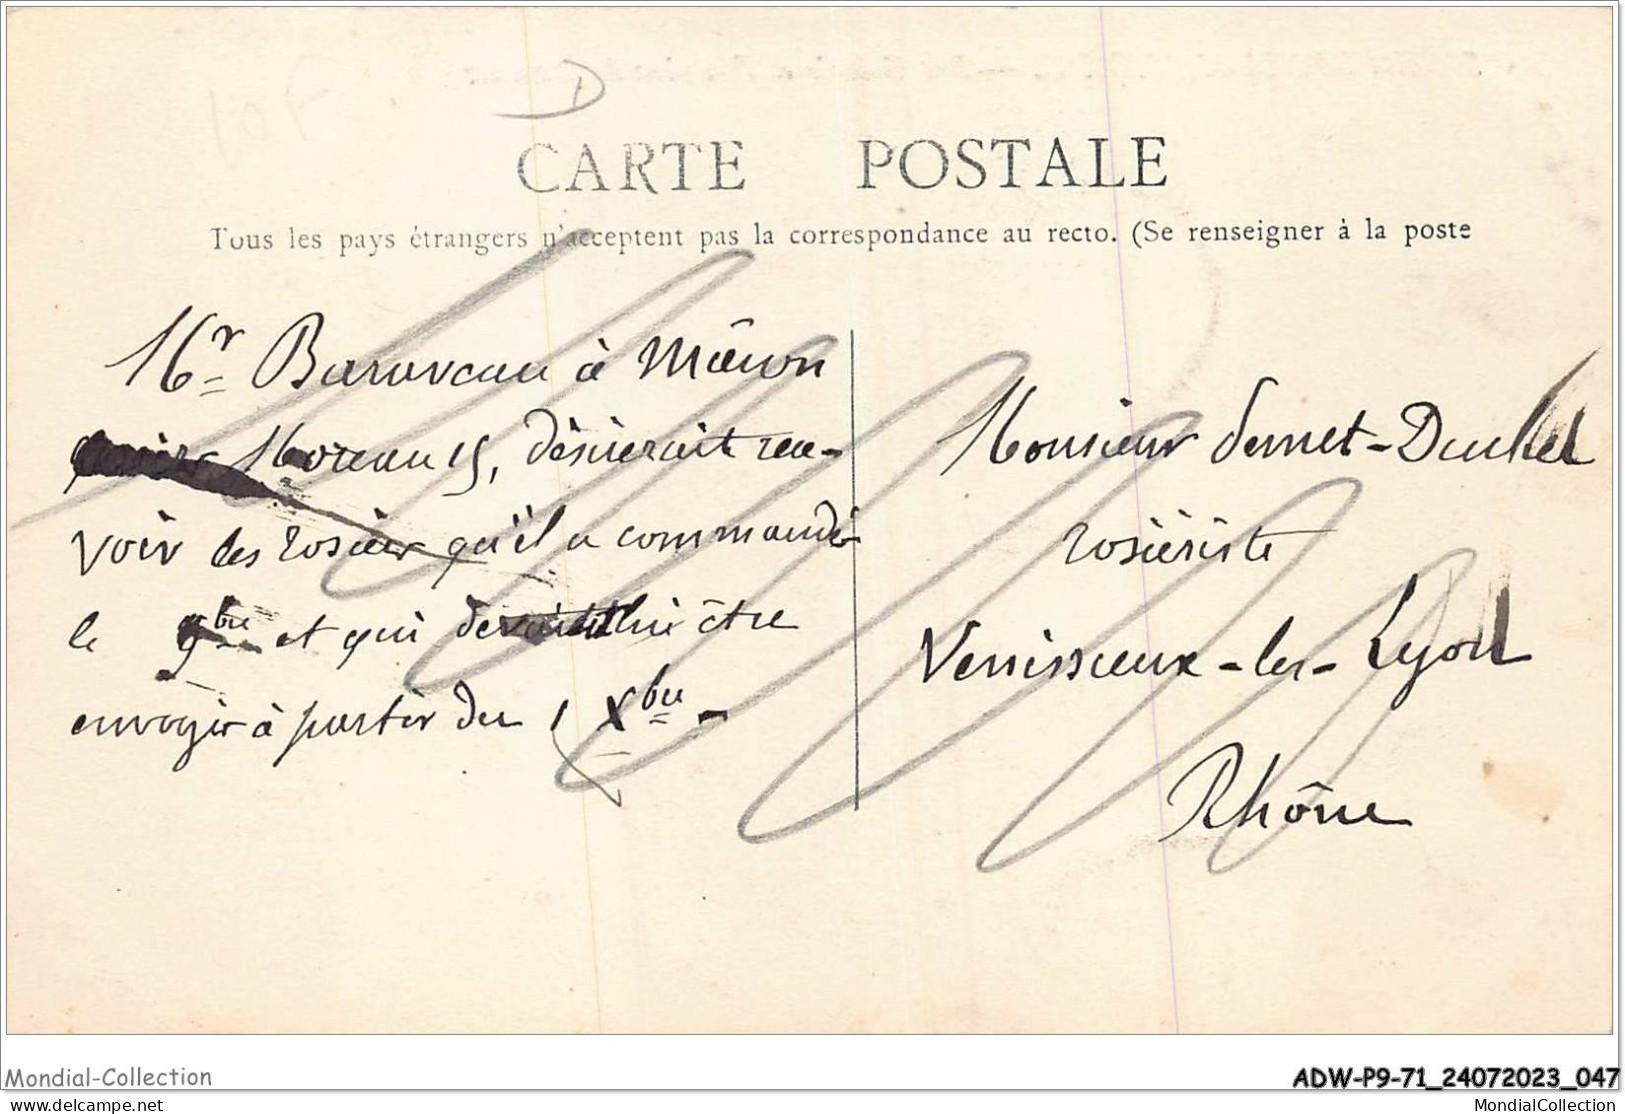 D
CARTE POSTALE
Tous les pays étrangers n'acceptent pas la correspondance au recto. (Se renseigner à la poste
Mr à Mâcon
15, désirerait rece-
voir les rosiers qu'il a commandé
le 9bre et qui être
envoyir à partir du 1 Xbre -
Monsieur
rosiériste
Venissieux-les-Lyon
Rhône
Mondial-Collection
ADW-P9-71_24072023_047
delcampe.net
MondialCollection